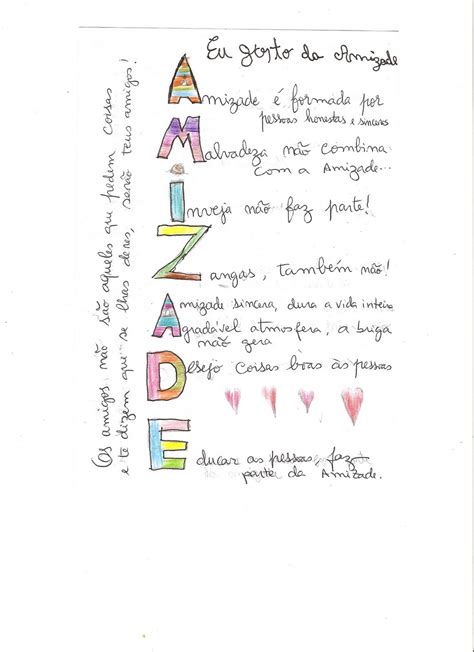 Eu gosto da Amizade
Amizade é formada por
pessoas honestas e sinceras
Malvadeza não combina
com a Amizade...
Inveja não faz parte!
Zangas, também não!
Amizade sincera, dura a vida inteira
Agradável atmosfera, a briga
não gera
Desejo coisas boas às pessoas
Educar as pessoas, faz
parte da Amizade.
Os amigos não são aqueles que pedem coisas
e te dizem que se lhas deres, serão teus amigos!